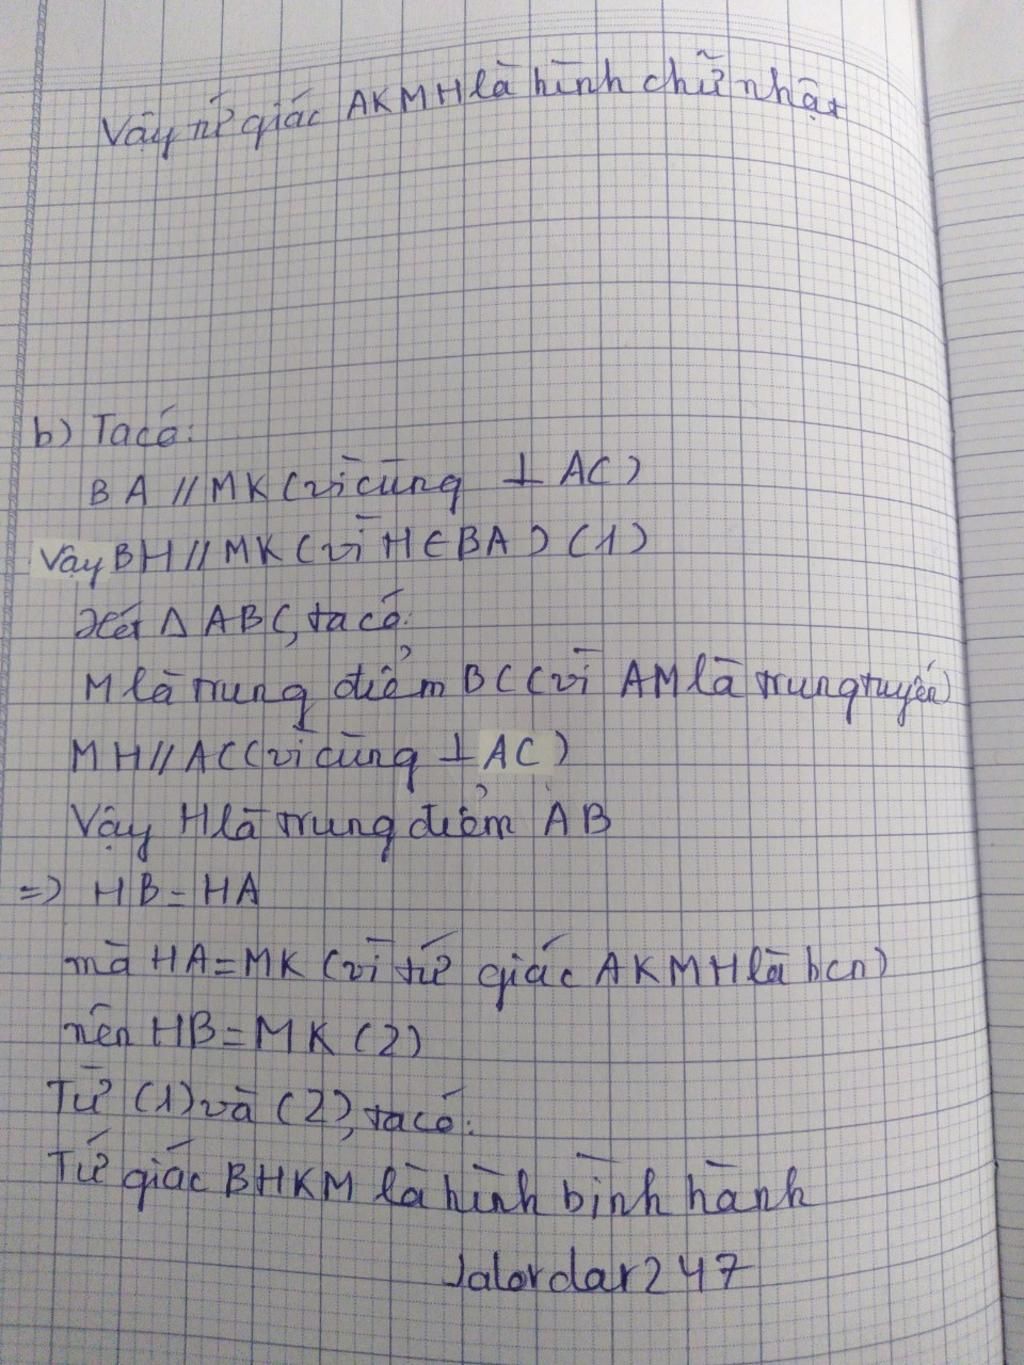 Vậy tứ giác AKMH là hình chữ nhật
b) Ta có:
BA // MK (vì cùng ⊥ AC)
Vậy BH // MK (vì H ∈ BA) (1)
Xét Δ ABC, ta có:
M là trung điểm BC (vì AM là trung tuyến)
MH // AC (vì cùng ⊥ AC)
Vậy H là trung điểm AB
=> HB = HA
mà HA = MK (vì tứ giác AKMH là hcn)
nên HB = MK (2)
Từ (1) và (2), ta có:
Tứ giác BHKM là hình bình hành
Jalordar247